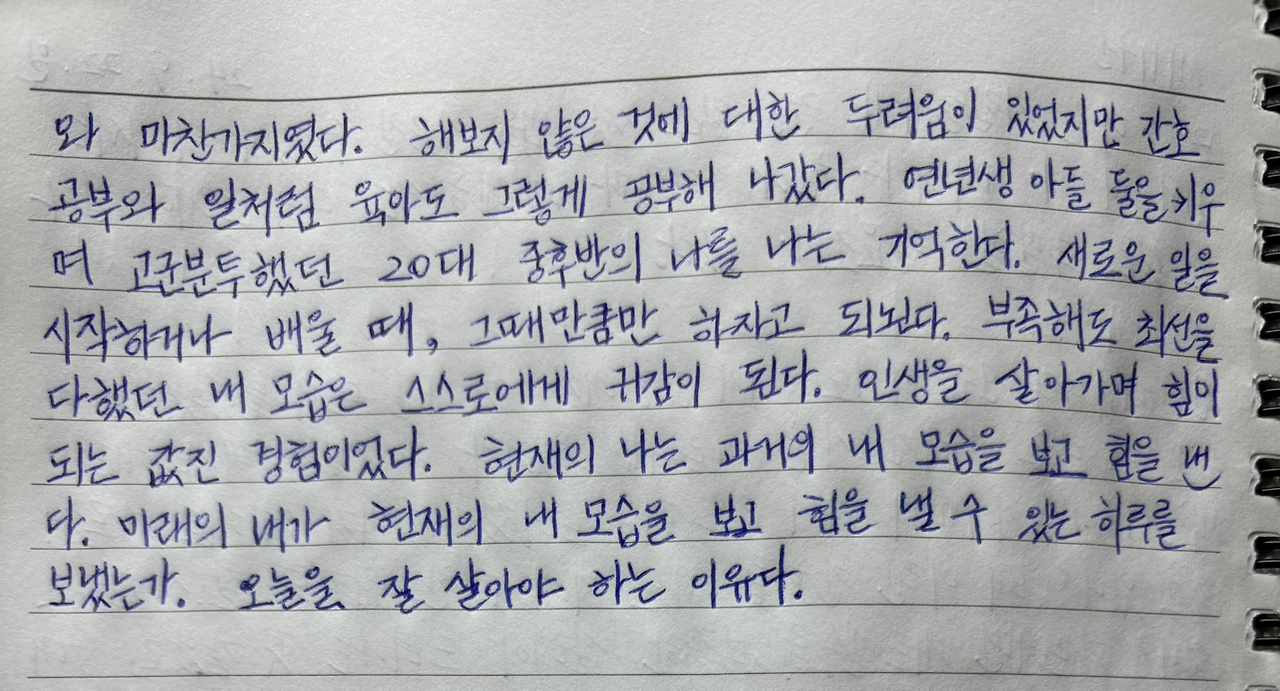 와 마찬가지였다. 해보지 않은 것에 대한 두려움이 있었지만 간호
공부와 일처럼 육아도 그렇게 공부해 나갔다. 연년생 아들 둘을 키우
며 고군분투했던 20대 중후반의 나를 나는 기억한다. 새로운 일을
시작하거나 배울 때, 그때만큼만 하자고 되뇐다. 부족해도 최선을
다했던 내 모습은 스스로에게 귀감이 된다. 인생을 살아가며 힘이
되는 값진 경험이었다. 현재의 나는 과거의 내 모습을 보고 힘을 낸
다. 미래의 내가 현재의 내 모습을 보고 힘을 낼 수 있는 하루를
보냈는가. 오늘을 잘 살아야 하는 이유다.